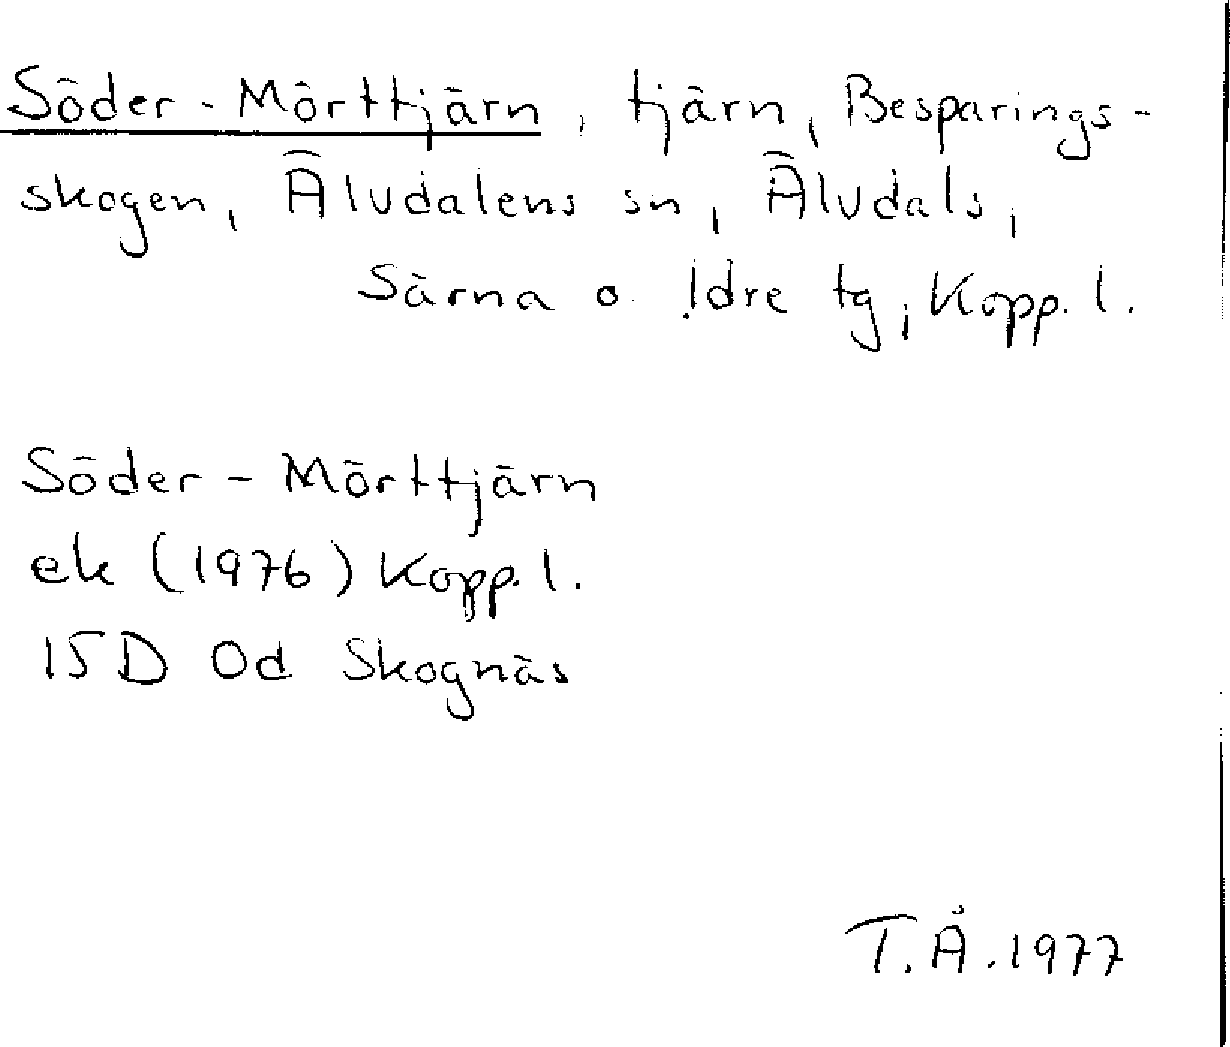 Söder-Mörttjärn, tjärn, Besparings-
skogen, Älvdalens sn, Älvdals,
Särna o. Idre tg, Kopp. l.
Söder-Mörttjärn
ek (1976) Kopp. l.
15D 0d Skognäs
T.Å. 1977